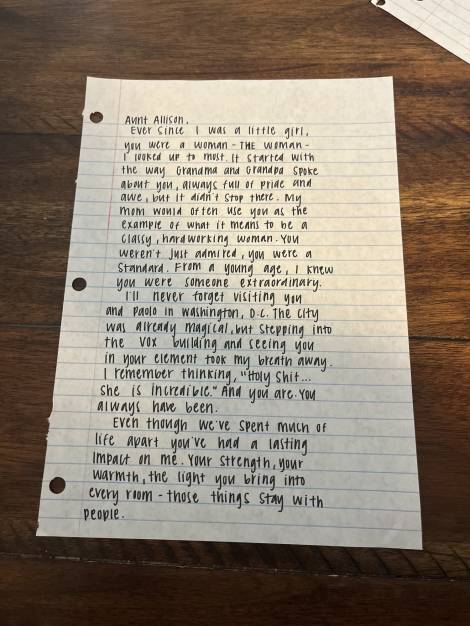 Aunt Allison,
Ever since I was a little girl,
you were a woman - THE woman -
I looked up to most. It started with
the way Grandma and Grandpa spoke
about you, always full of pride and
awe, but it didn't stop there. My
mom would often use you as the
example of what it means to be a
classy, hardworking woman. You
weren't just admired, you were a
standard. From a young age, I knew
you were someone extraordinary.
I'll never forget visiting you
and Paolo in Washington, D.C. The city
was already magical, but stepping into
the VOX building and seeing you
in your element took my breath away.
I remember thinking, "Holy shit...
she is incredible." And you are. You
always have been.
Even though we've spent much of
life apart you've had a lasting
impact on me. Your strength, your
warmth, the light you bring into
every room - those things stay with
people.